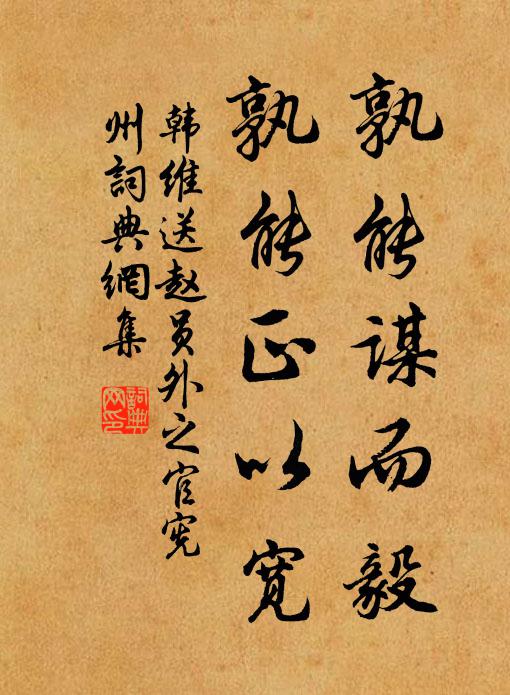 孰能谋而毅
孰能正以宽
韩维送赵员外之官兖
州詞典網集
詞典
网印